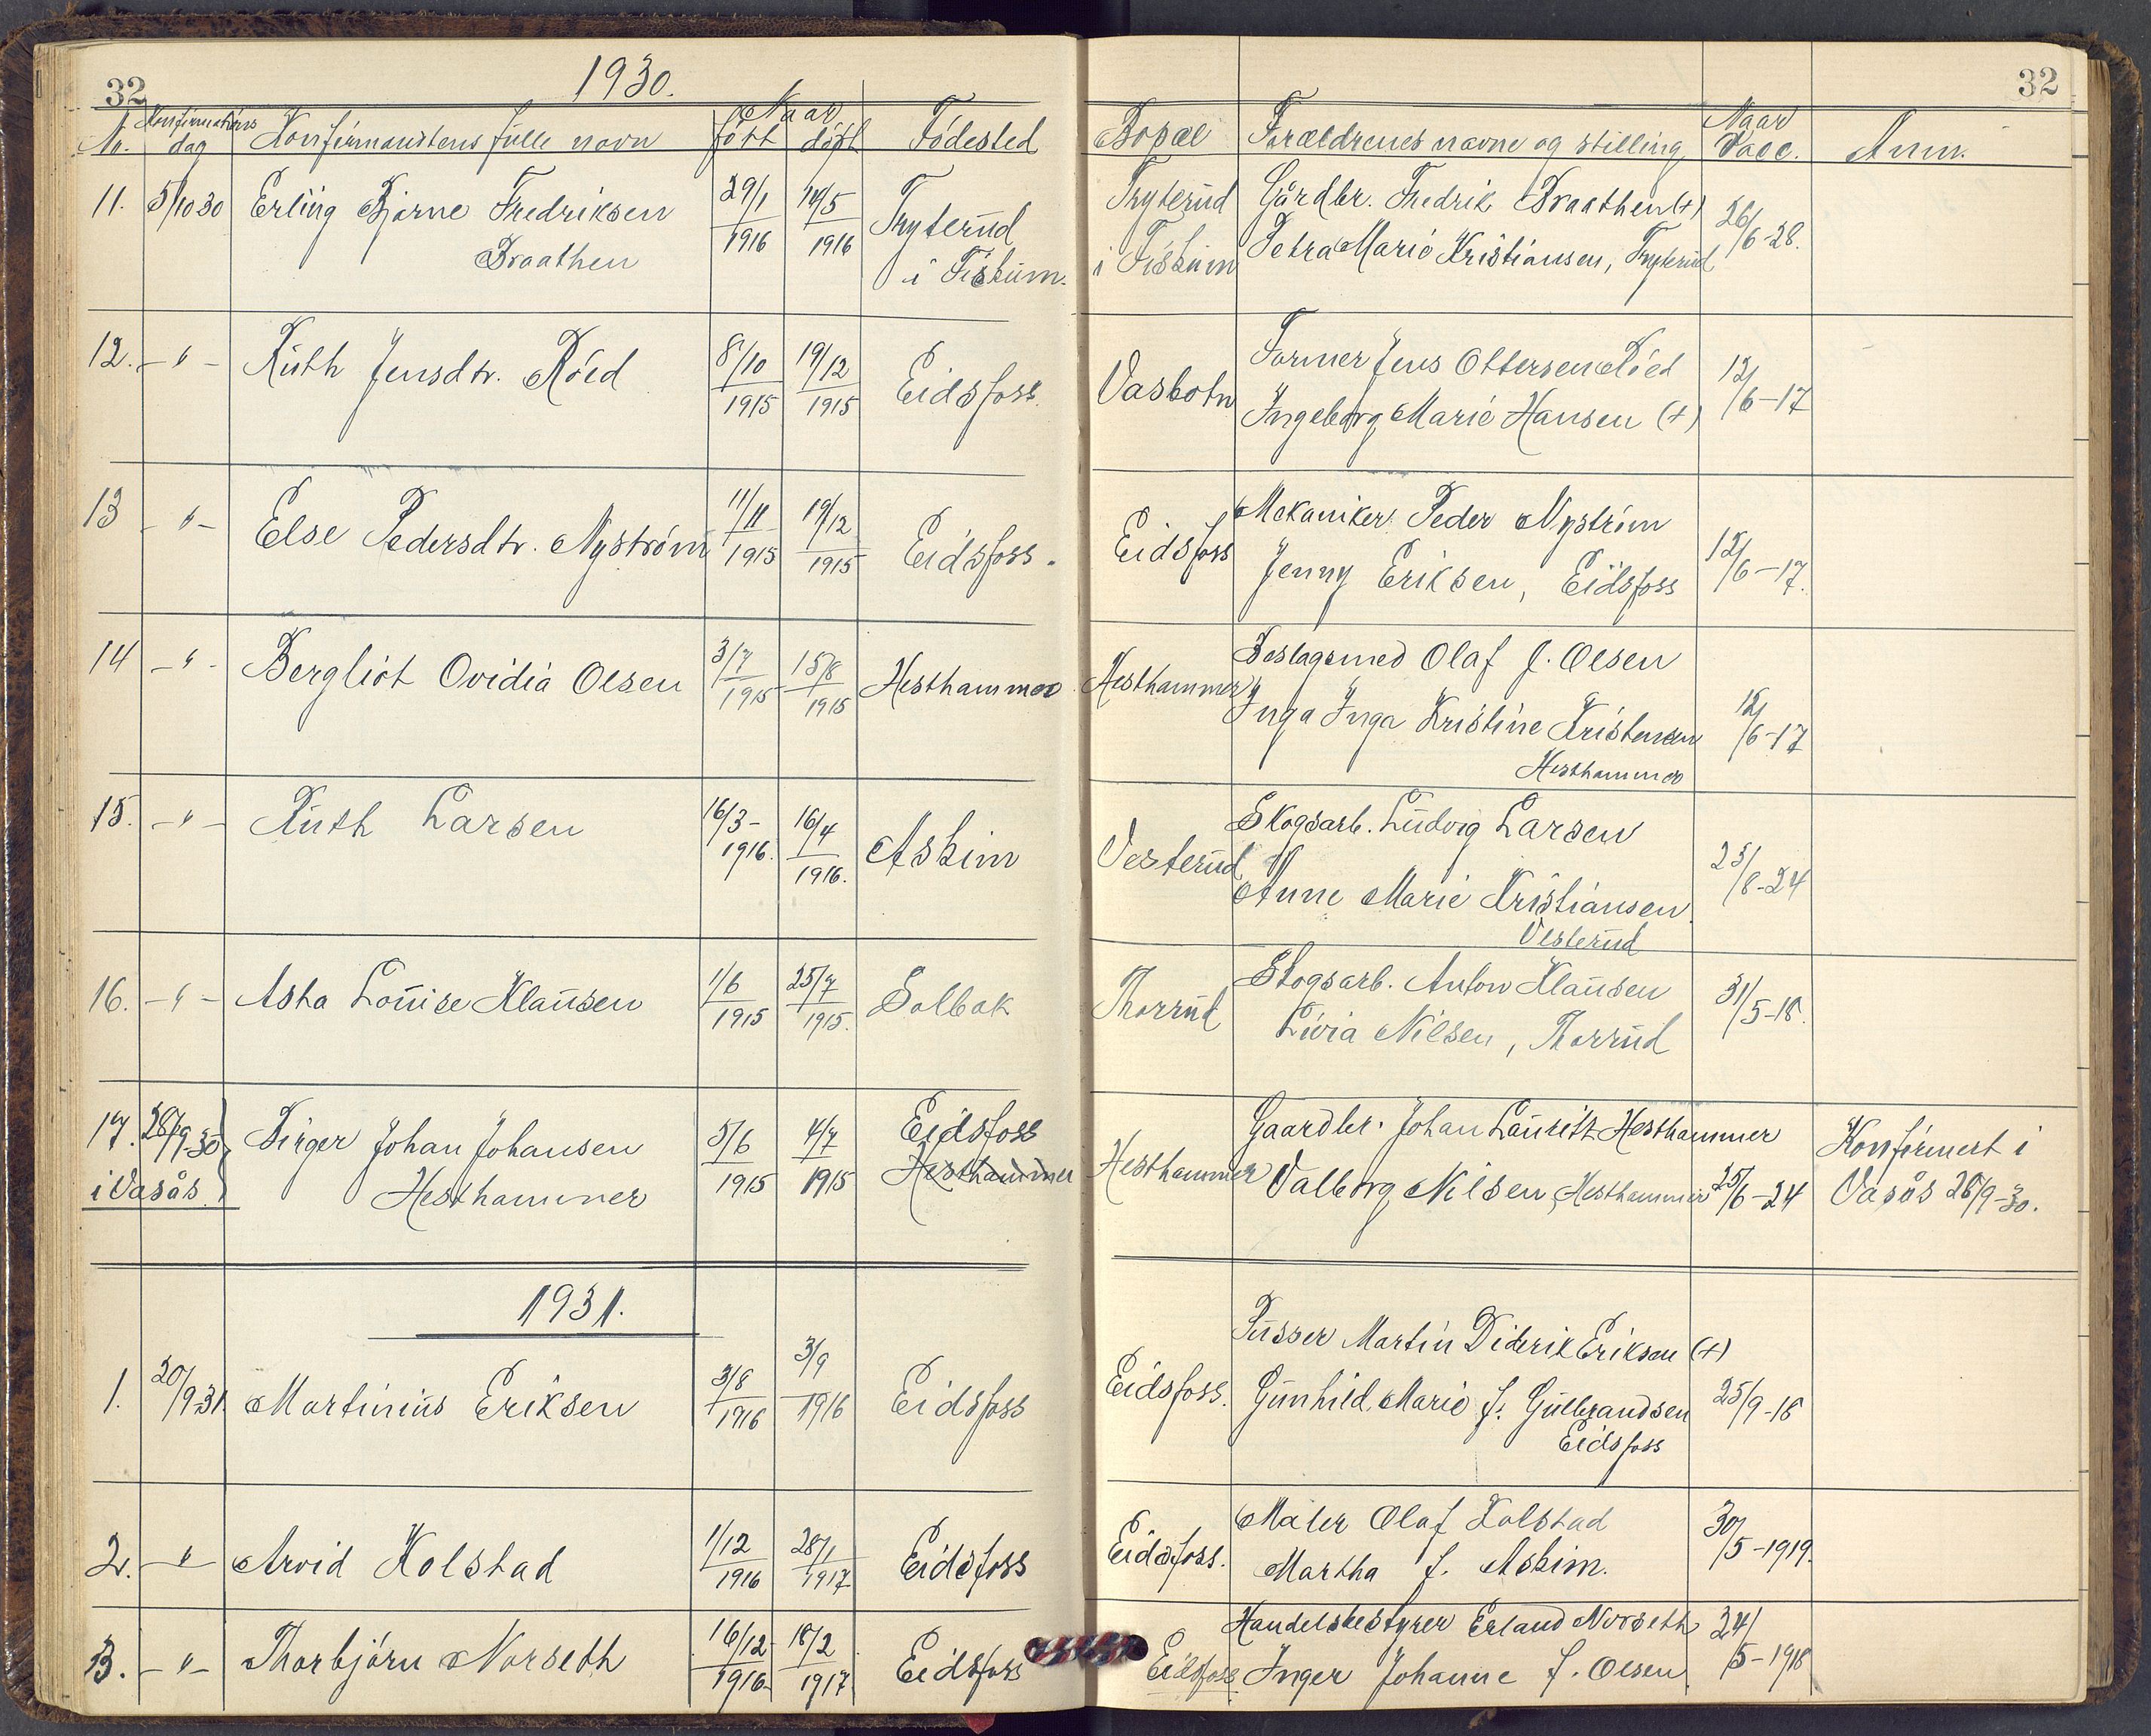 32
1930.
32
Nr.
Konfirmations
dag
Konfirmantens fulle navn
Naar
født
døpt
Fødested
Bopæl
Forældrenes navne og stilling
Naar
Vacc.
Anm.
11. 5/10 30 Erling Bjarne Fredriksen
Braathen
29/1
1916
14/5
1916
Tryterud
i Fiskum.
Tryterud
i Fiskum
Gårdbr. Fredrik Braathen (+)
Petra Marie Kristiansen, Tryterud
26/6-28.
12. – " – Ruth Jensdtr. Röed
8/10
1915
19/12
1915
Eidsfoss.
Vasbotn
Former Jens Ottersen Röed
Ingeborg Marie Hansen (+)
12/6-17
13 – " – Else Pedersdtr. Nyström
11/11
1915
19/12
1915
Eidsfoss.
Eidsfoss
Mekaniker Peder Nyström
Jenny Eriksen, Eidsfoss
12/6-17.
14 – " – Bergliot Ovidia Olsen
3/7
1915
15/8
1915
Hesthammer
Hesthammer
Beslagsmed Olaf J. Olsen
Inga Inga Kristine Kristensen
Hesthammer
12/6-17
15. – " – Ruth Larsen
16/3-
1916.
16/4
1916.
Askim
Vesterud
Skogsarb. Ludvig Larsen
Anne Marie Kristiansen
Vesterud
23/8-24
16. – " – Asta Louise Klausen
1/6
1915
25/7
1915.
Solbak
Thorrud
Skogsarb. Anton Klausen
Livia Nilsen, Thorrud
31/5-18.
17. 28/9-30
i Vasås.
Birger Johan Johansen
Hesthammer
5/6
1915
4/7
1915
Eidsfoss
Hesthammer
Hesthammer
Gaardbr. Johan Lauritz Hesthammer
Valborg Nilsen, Hesthammer
25/6-24
Konfirmert i
Vasås 28/9-30.
1931.
1. 20/9-31. Martinius Eriksen
3/8
1916
3/9
1916
Eidsfoss
Eidsfoss.
Pusser Martin Diderik Eriksen (+)
Gunhild Marie f. Gulbrandsen
Eidsfoss
25/9-18
2. – " – Arvid Kolstad
1/12
1916
28/1
1917
Eidsfoss
Eidsfoss.
Maler Olaf Kolstad
Martha f. Askim.
30/5-1919.
3. – " – Thorbjörn Norseth
16/12
1916
18/2
1917
Eidsfoss
Eidsfoss
Handelsbestyrer Erland Norseth
Inger Johanne f. Olsen
24/5-1918